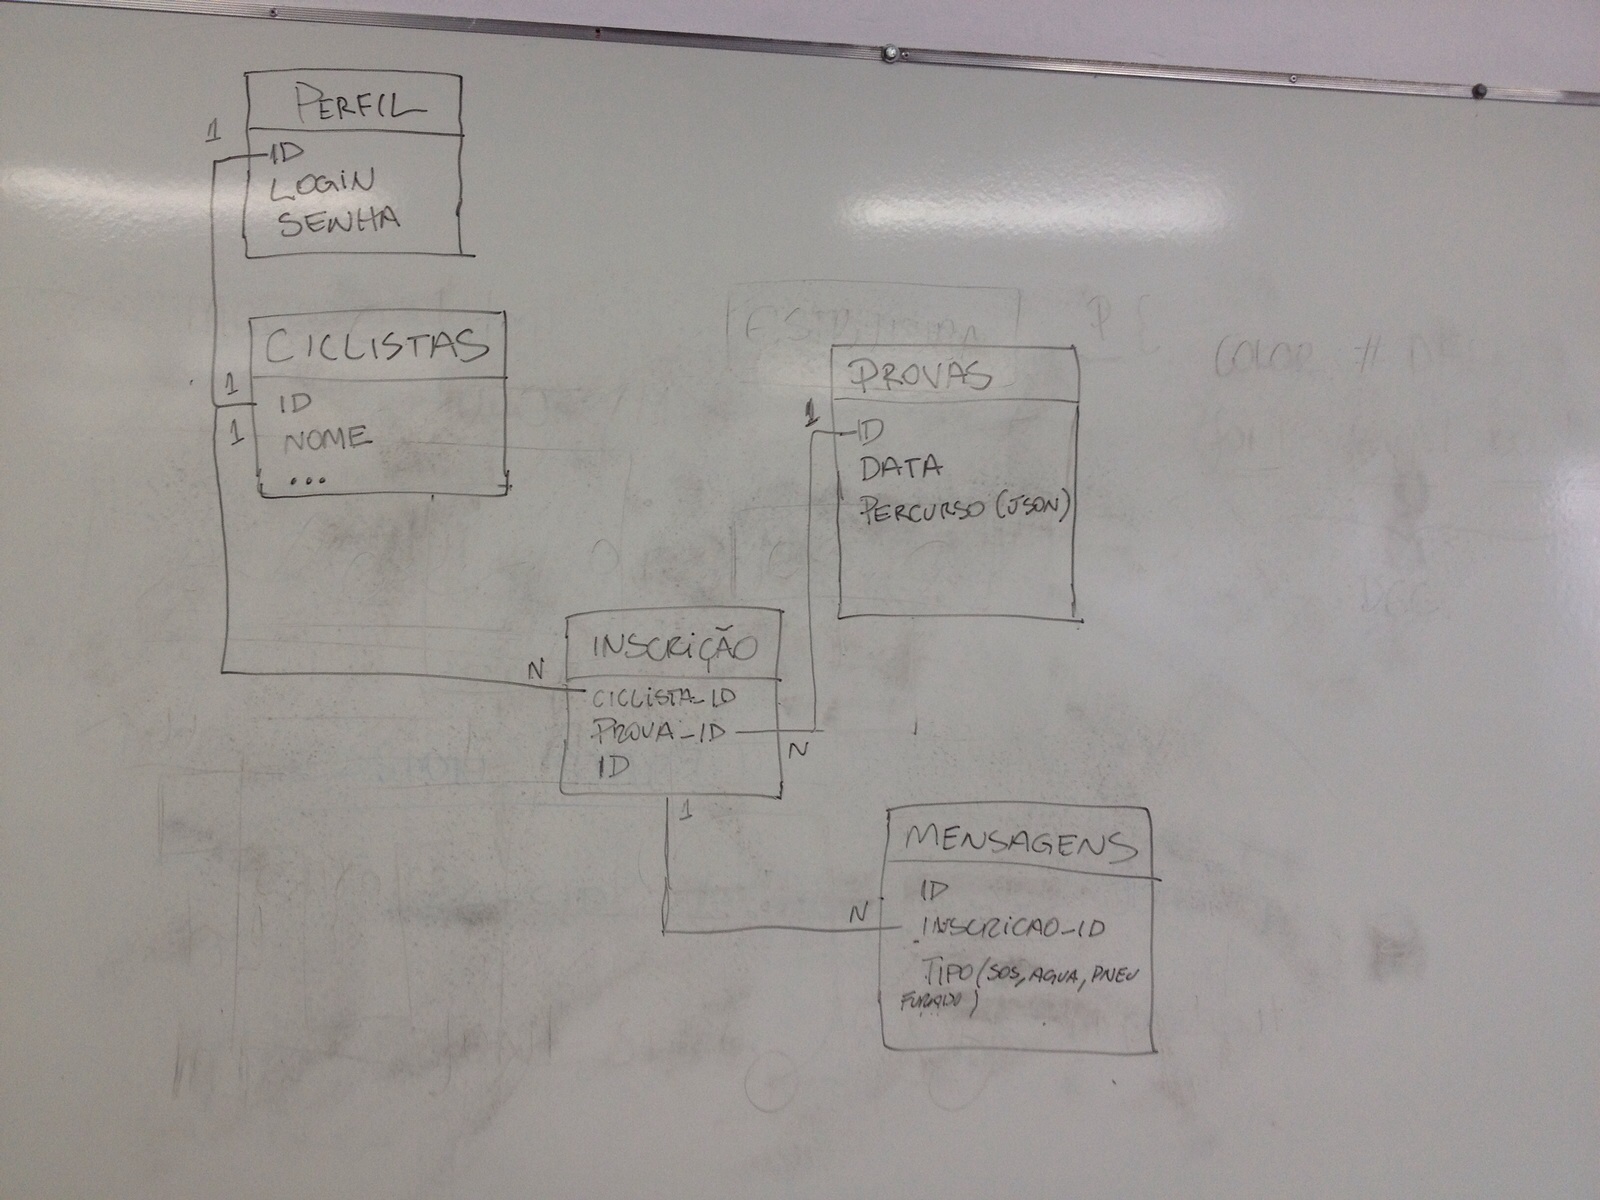 PERFIL
1
ID
LOGIN
SENHA
CICLISTAS
1
ID
1
NOME
...
PROVAS
1
ID
DATA
PERCURSO (JSON)
INSCRIÇÃO
N
CICLISTA_ID
PROVA_ID
N
ID
1
MENSAGENS
ID
N
INSCRICAO_ID
TIPO (SOS, AGUA, PNEU
FURADO)
COLOR #